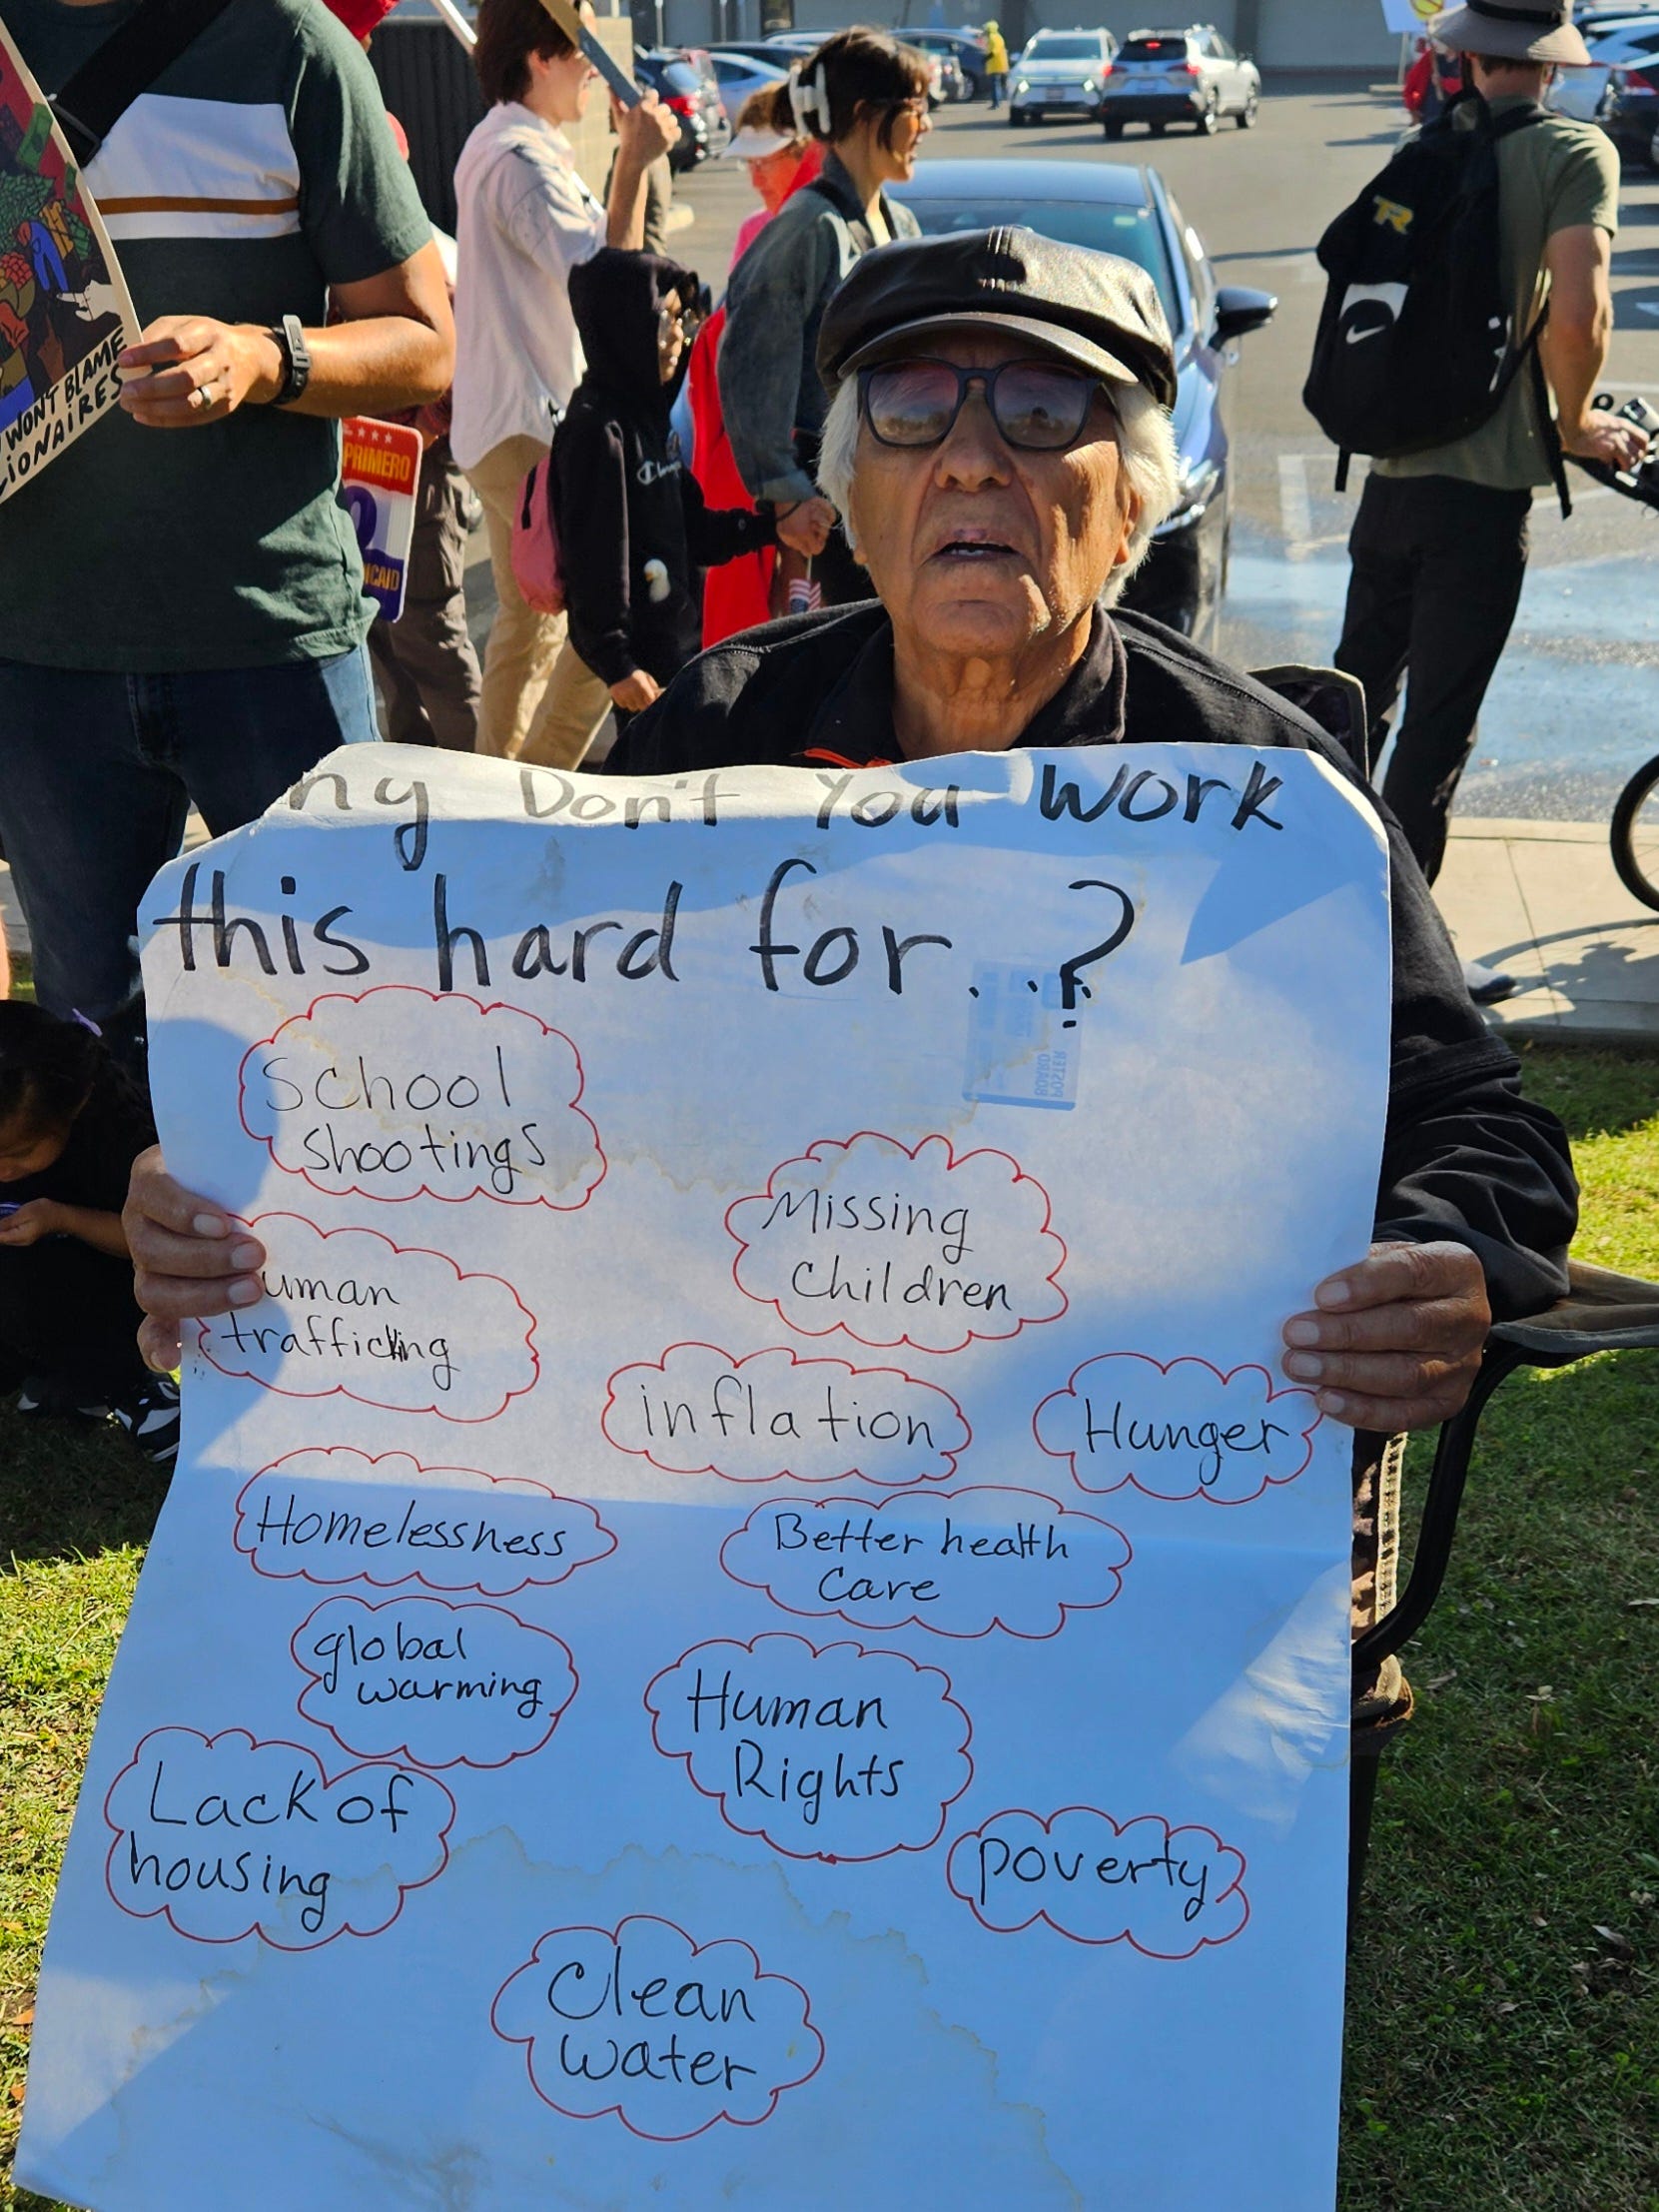 WON'T BLAME
PRIMERO
Champion
TR
Don't You Work
this hard for...?
School
shootings
Missing
Children
uman
trafficking
inflation
Hunger
Homelessness
Better health
care
global
warming
Human
Rights
Lack of
housing
poverty
Clean
water
POSTER
BOARD